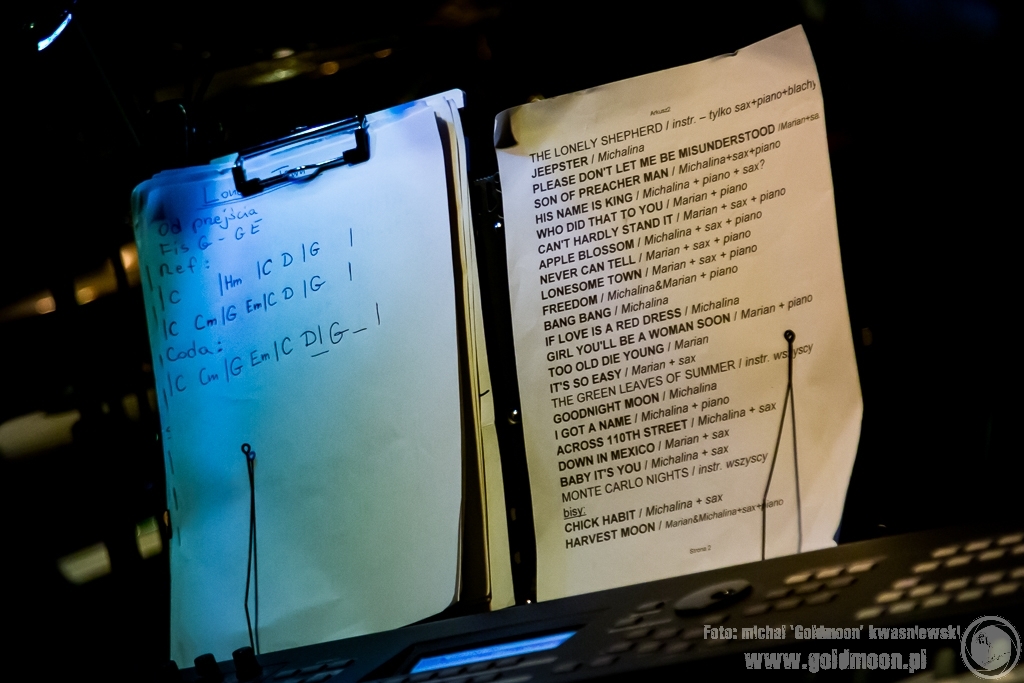 Od przejścia
Fis G - G E
Ref:
|C |Hm |C D |G |
|C Cm|G Em|C D |G |
Coda:
|C Cm|G Em|C D|G _ |
Arkusz2
THE LONELY SHEPHERD / instr. – tylko sax+piano+blachy
JEEPSTER / Michalina
PLEASE DON'T LET ME BE MISUNDERSTOOD /Marian+sa
SON OF PREACHER MAN / Michalina+sax+piano
HIS NAME IS KING / Michalina + piano + sax?
WHO DID THAT TO YOU / Marian + piano
CAN'T HARDLY STAND IT / Marian + sax + piano
APPLE BLOSSOM / Michalina + sax + piano
NEVER CAN TELL / Marian + sax + piano
LONESOME TOWN / Marian + sax + piano
FREEDOM / Michalina&Marian + piano
BANG BANG / Michalina
IF LOVE IS A RED DRESS / Michalina
GIRL YOU'LL BE A WOMAN SOON / Marian + piano
TOO OLD DIE YOUNG / Marian
IT'S SO EASY / Marian + sax
THE GREEN LEAVES OF SUMMER / instr. wszyscy
GOODNIGHT MOON / Michalina
I GOT A NAME / Michalina + piano
ACROSS 110TH STREET / Michalina + sax
DOWN IN MEXICO / Marian + sax
BABY IT'S YOU / Michalina + sax
MONTE CARLO NIGHTS / instr. wszyscy
bisy:
CHICK HABIT / Michalina + sax
HARVEST MOON / Marian&Michalina+sax+piano
Strona 2
Foto: michał 'Goldmoon' kwaśniewski
www.goldmoon.pl